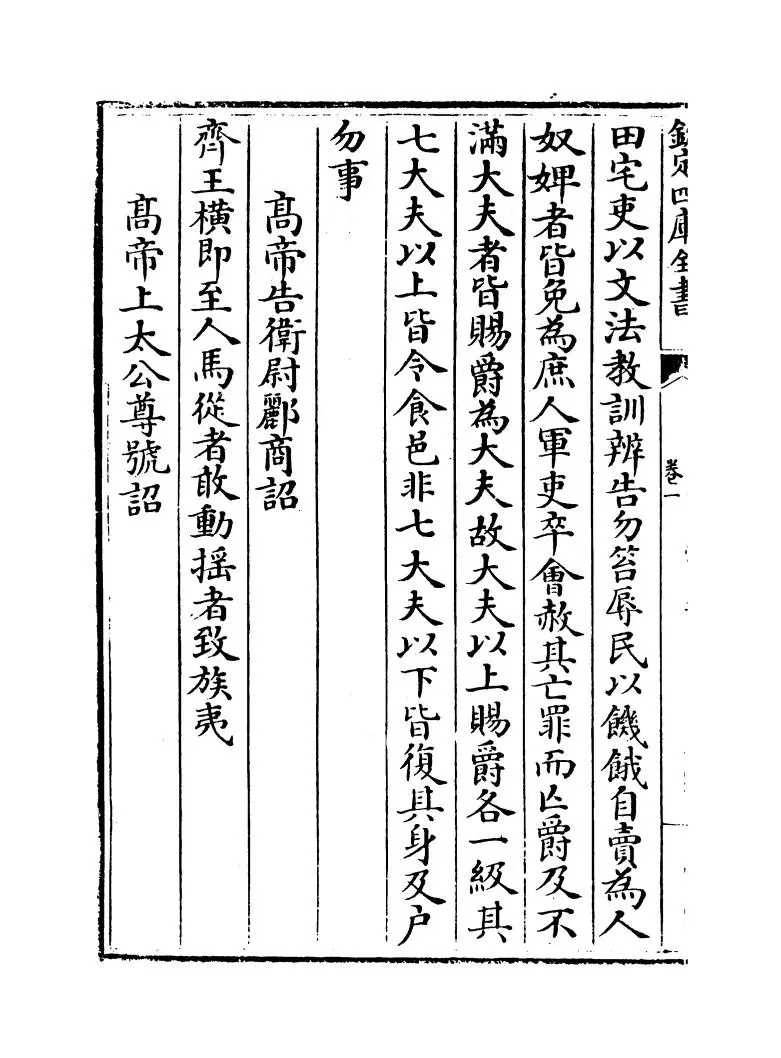 欽定四庫全書
卷一
田宅吏以文法教訓辨告勿笞辱民以饑餓自賣為人
奴婢者皆免為庶人軍吏卒會赦其亡罪而亡爵及不
滿大夫者皆賜爵為大夫故大夫以上賜爵各一級其
七大夫以上皆令食邑非七大夫以下皆復其身及户
勿事
髙帝告衛尉酈商詔
齊王橫即至人馬從者敢動揺者致族夷
髙帝上太公尊號詔